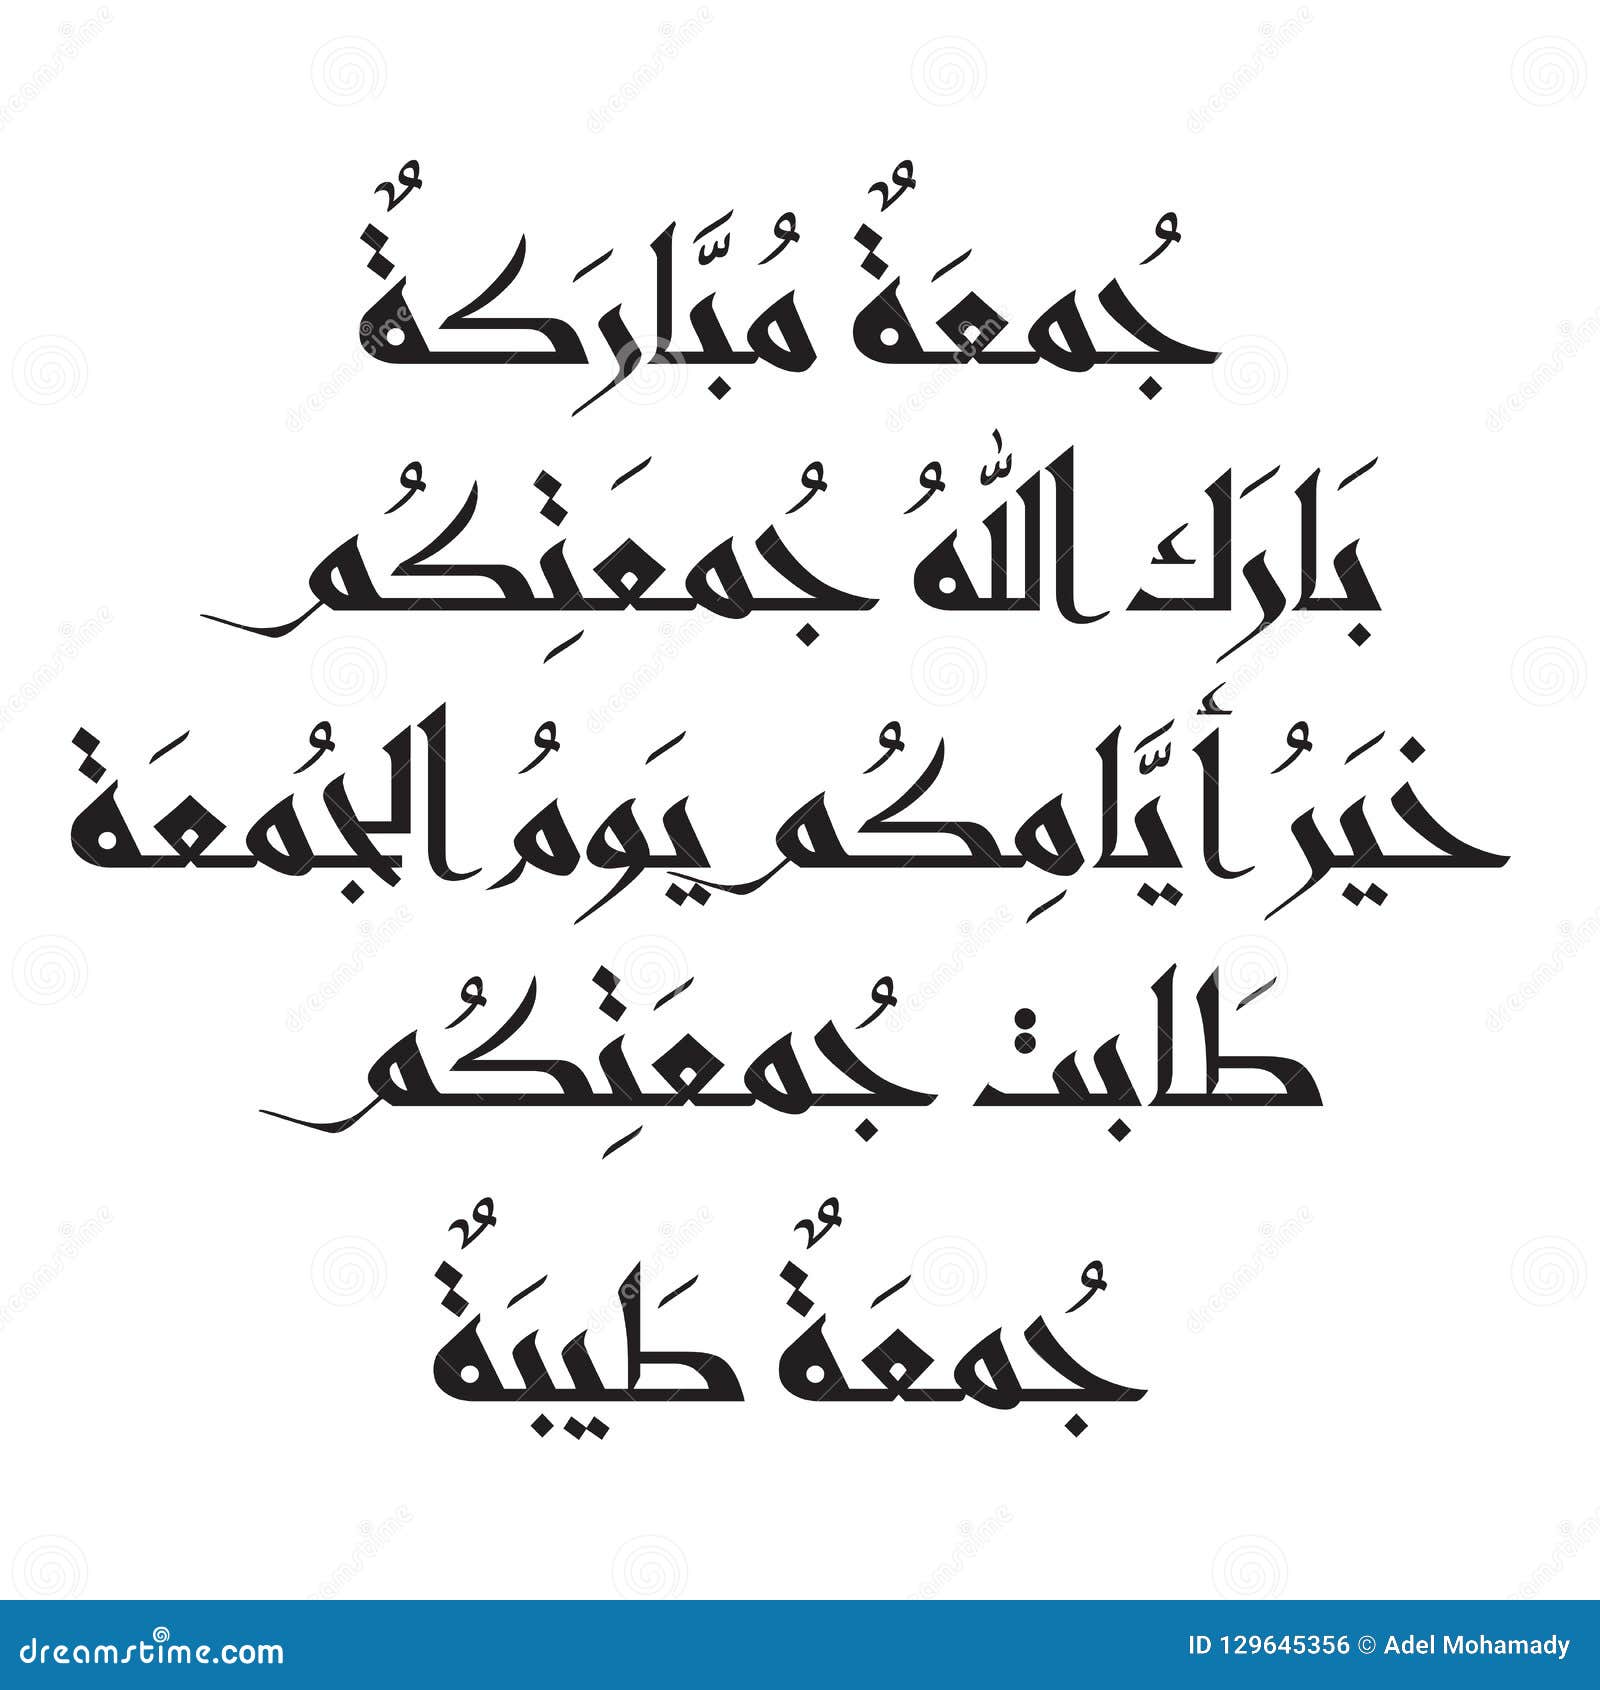 جُمعَةٌ مُبَّارَكةٌ
بَارَك اللّٰهُ جُمعَتِكُم
خَيَرُ أيَّامِكُم يَومُ الجُمعَة
طَابت جُمعَتِكُم
جُمعَةٌ طَيبَةٌ
dreamstime.com
ID 129645356 © Adel Mohamady